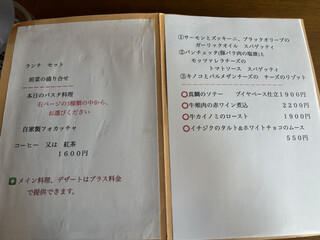 ランチ セット
前菜の盛り合せ
本日のパスタ料理
右ページの3種類の中から、
お選びください
自家製フォカッチャ
コーヒー 又は 紅茶
1600円
メイン料理、デザートはプラス料金
で提供できます。
①サーモンとズッキーニ、ブラックオリーブの
ガーリックオイル スパゲティ
②パンチェッタ(豚バラ肉の塩漬)と
モッツァレラチーズの
トマトソース スパゲティ
③キノコとパルメザンチーズの チーズのリゾット
真鯛のソテー ブイヤベース仕立1900円
牛頬肉の赤ワイン煮込 2200円
牛カイノミのロースト 1900円
イチジクのタルト&ホワイトチョコのムース
550円